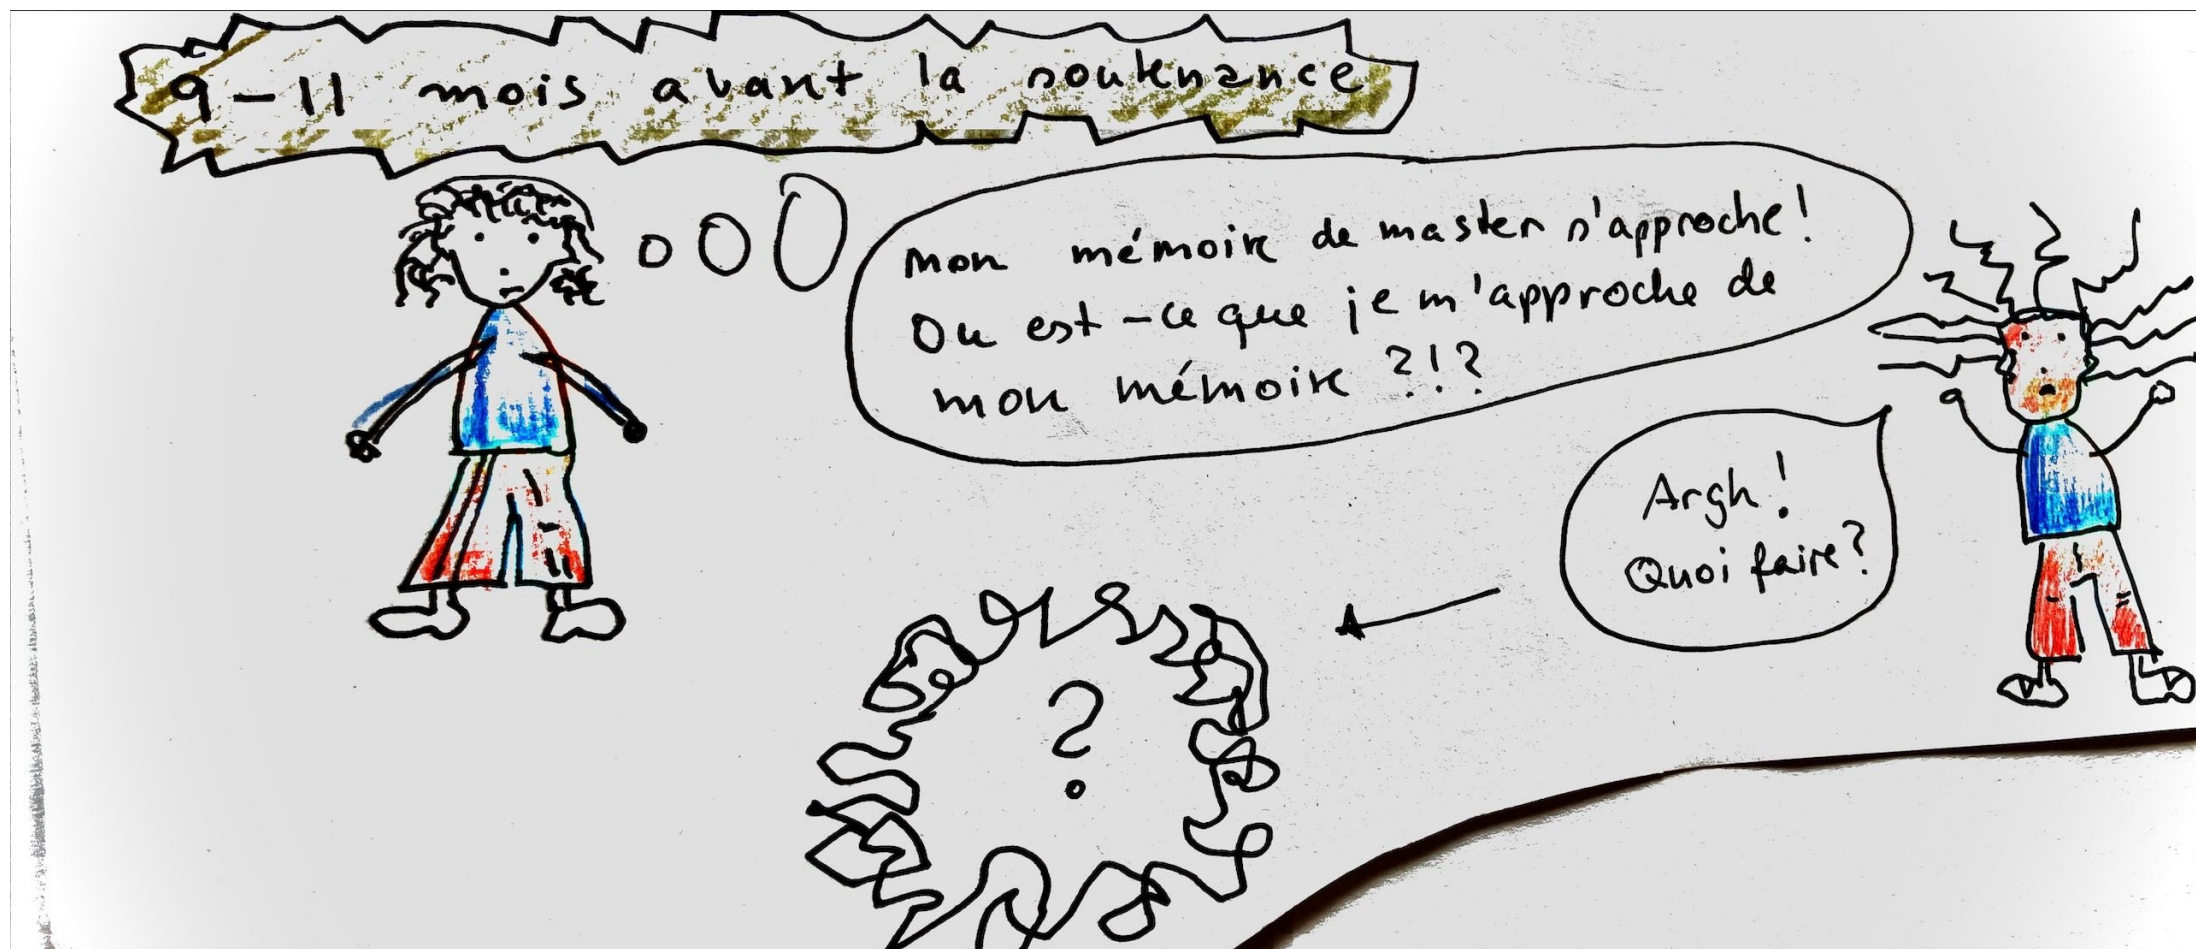 9-11 mois avant la soutenance
mon mémoire de master s'approche!
Ou est-ce que je m'approche de
mon mémoire ?!?
Argh!
Quoi faire?
?